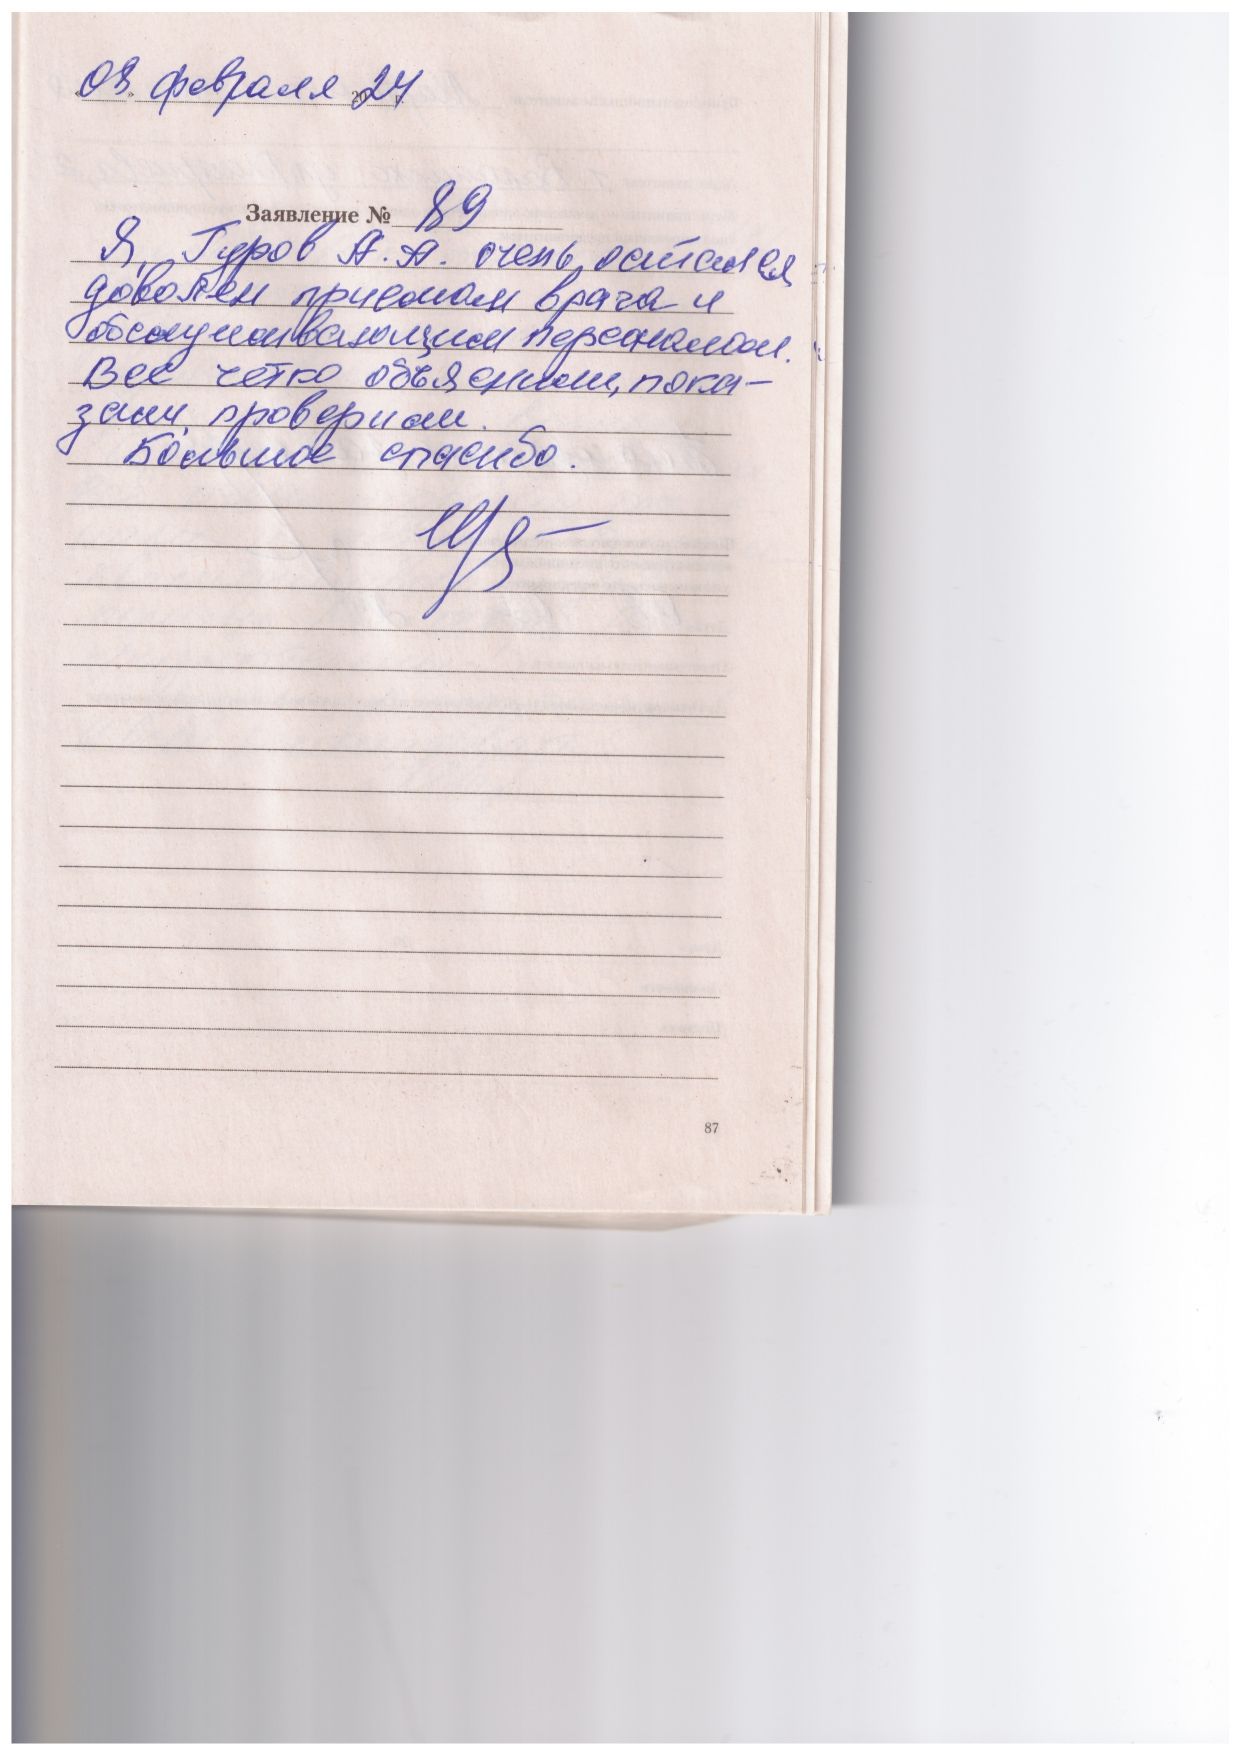 « 09 » февраля 2024
Заявление № 89
Я, Гуров А.А. очень остался
доволен приемом врача и
обслуживающим персоналом.
Все четко объяснили, пока-
зали, проверили.
Большое спасибо.
87